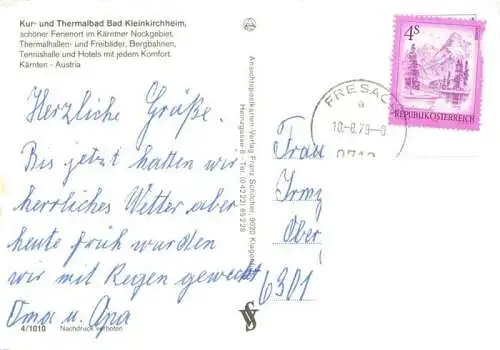 Kur- und Thermalbad Bad Kleinkirchheim,
schöner Ferienort im Kärntner Nockgebiet.
Thermalhallen- und Freibäder, Bergbahnen,
Tennishalle und Hotels mit jedem Komfort.
Kärnten - Austria
Herzliche Grüße.
Bis jetzt hatten wir
herrliches Wetter, aber
heute früh wurden
wir mit Regen geweckt
Oma u. Opa
4/1010 Nachdruck verboten
Ansichtspostkarten-Verlag Franz Schilcher, 9020 Klagenfurt
Tel. (04222)
4s
REPUBLIK ÖSTERREICH
FRESAC
a
10.-8.79-
Frau
Irmg
Ober
6301